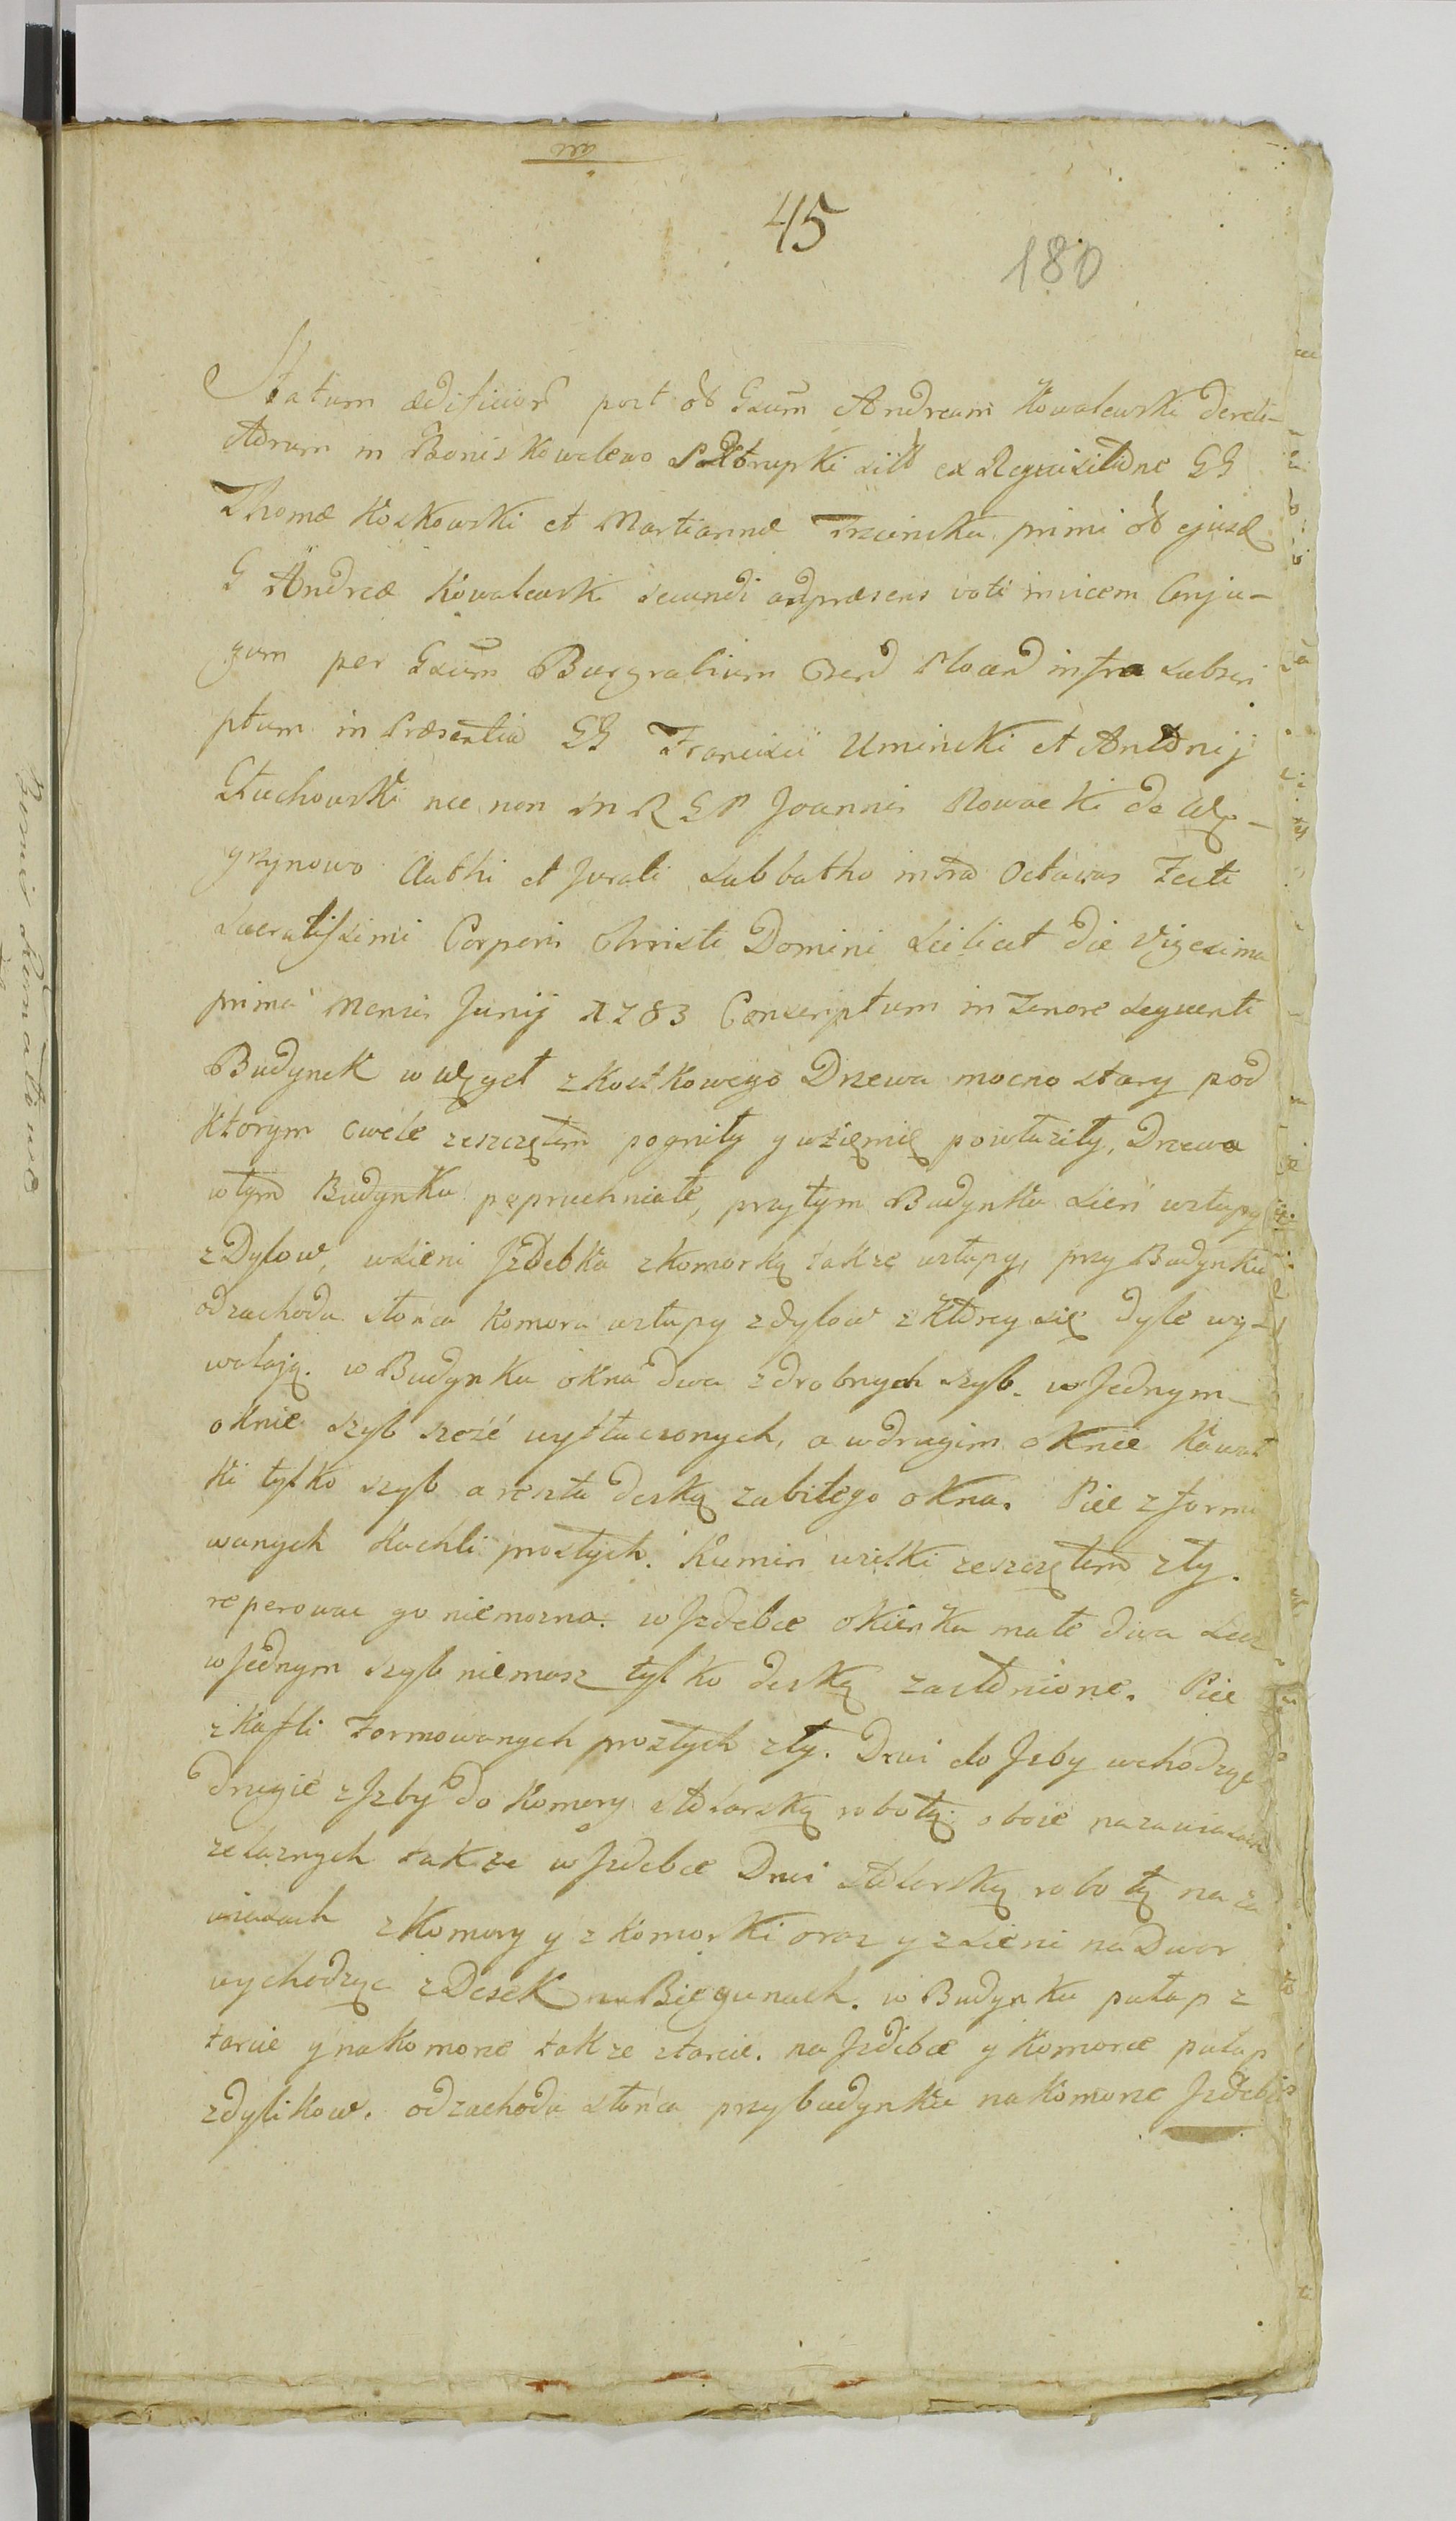 45
180
Statum ædificior post ol Gsum Andream Kowalewski dereli-
ctorum in Bonis Kowalewo sitt ex Requisitione GG
Thomæ Koskowski et Martiannæ Trzcinska primi ol ejusd
G Andreæ Kowalewski secundi ad præsens voti invicem Conju-
gum per Gsum Burgrabium infra subscri
ptum in Præsentia GG Francisci Uminski et Antonij
Głuchowski nec non Joannis Nowacki de Wę-
grzynowo Authi et Jurati Sabbatho infra Octavas Festi
Sacratissimi Corporis Christi Domini scilicet die Vigesima
prima Mensis Junij 1783 Conscriptum in Tenore sequenti
Budynek w węgeł z Kostkowego Drzewa mocno stary pod
ktorym cwele zeszczętem pogniły y w ziemię powłaziły, Drzewo
w tym Budynku popruchniałe, przytym Budynku sien w słupy
z Dylow, w sieni Jzdebka z komorką także w słupy, przy Budynku
od zachodu słońca komora w słupy z dylow z ktorey się dyle wy-
walają. w Budynku okna dwa z drobnych szyb. w Jednym
oknie szyb sześć wytłuczonych, a w drugim oknie kawał
ki tylko szyb a reszta deską zabitego okna. Piec z formo
wanych kachli prostych. Kumin zeszczętem zły.
reperować go niemozna. w Jzdebce okienka małe dwa Lecz
w Jednym szyb niemasz tylko deską zasłonione. Piec
z kafli formowanych prostych zły. Drzwi do Jzby wchodząc
drugie z Jzby do Komory stolarską robotą oboie na zawiasach
zelaznych także w Jzdebce Drzwi stolarską robotą na za
wiasach z Komory y z komorki oraz y z sieni na Dwor
wychodząc z Desek na Biegunach. w Budynku pułap z
tarcic y na komorze także z tarcic. na Jzdebce y komorce pułap
z dylikow. od zachodu słońca przy budynku na komorze Jzdebce